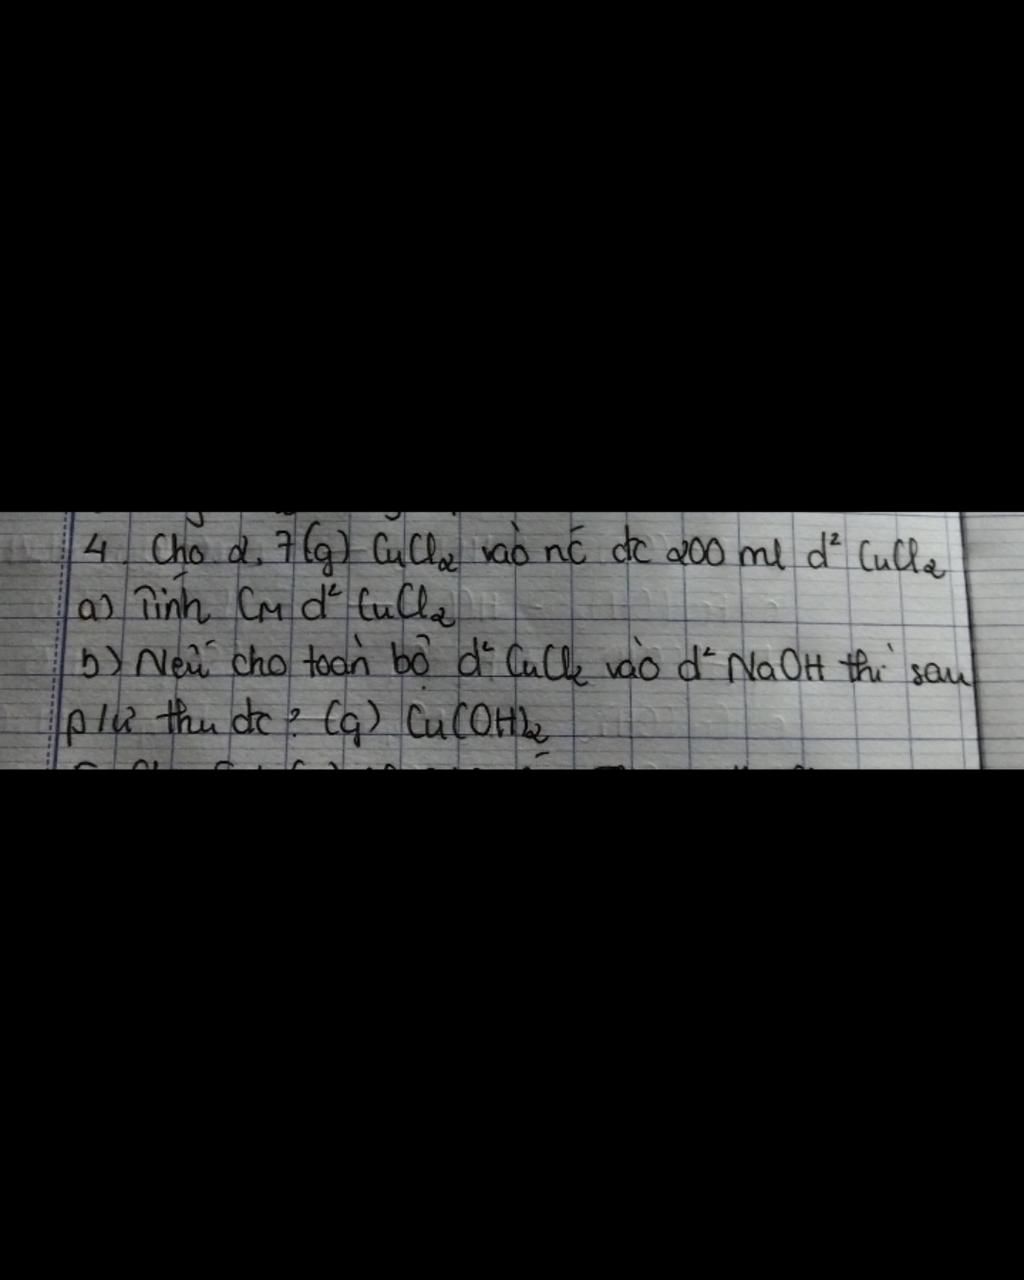 4. Cho 2,7(g) CuCl2 vào nc đc 200 ml d² CuCl2
a) Tính CM d² CuCl2
b) Nếu cho toàn bộ d² CuCl2 vào d² NaOH thì sau
p/ứ thu đc ? (g) Cu(OH)2